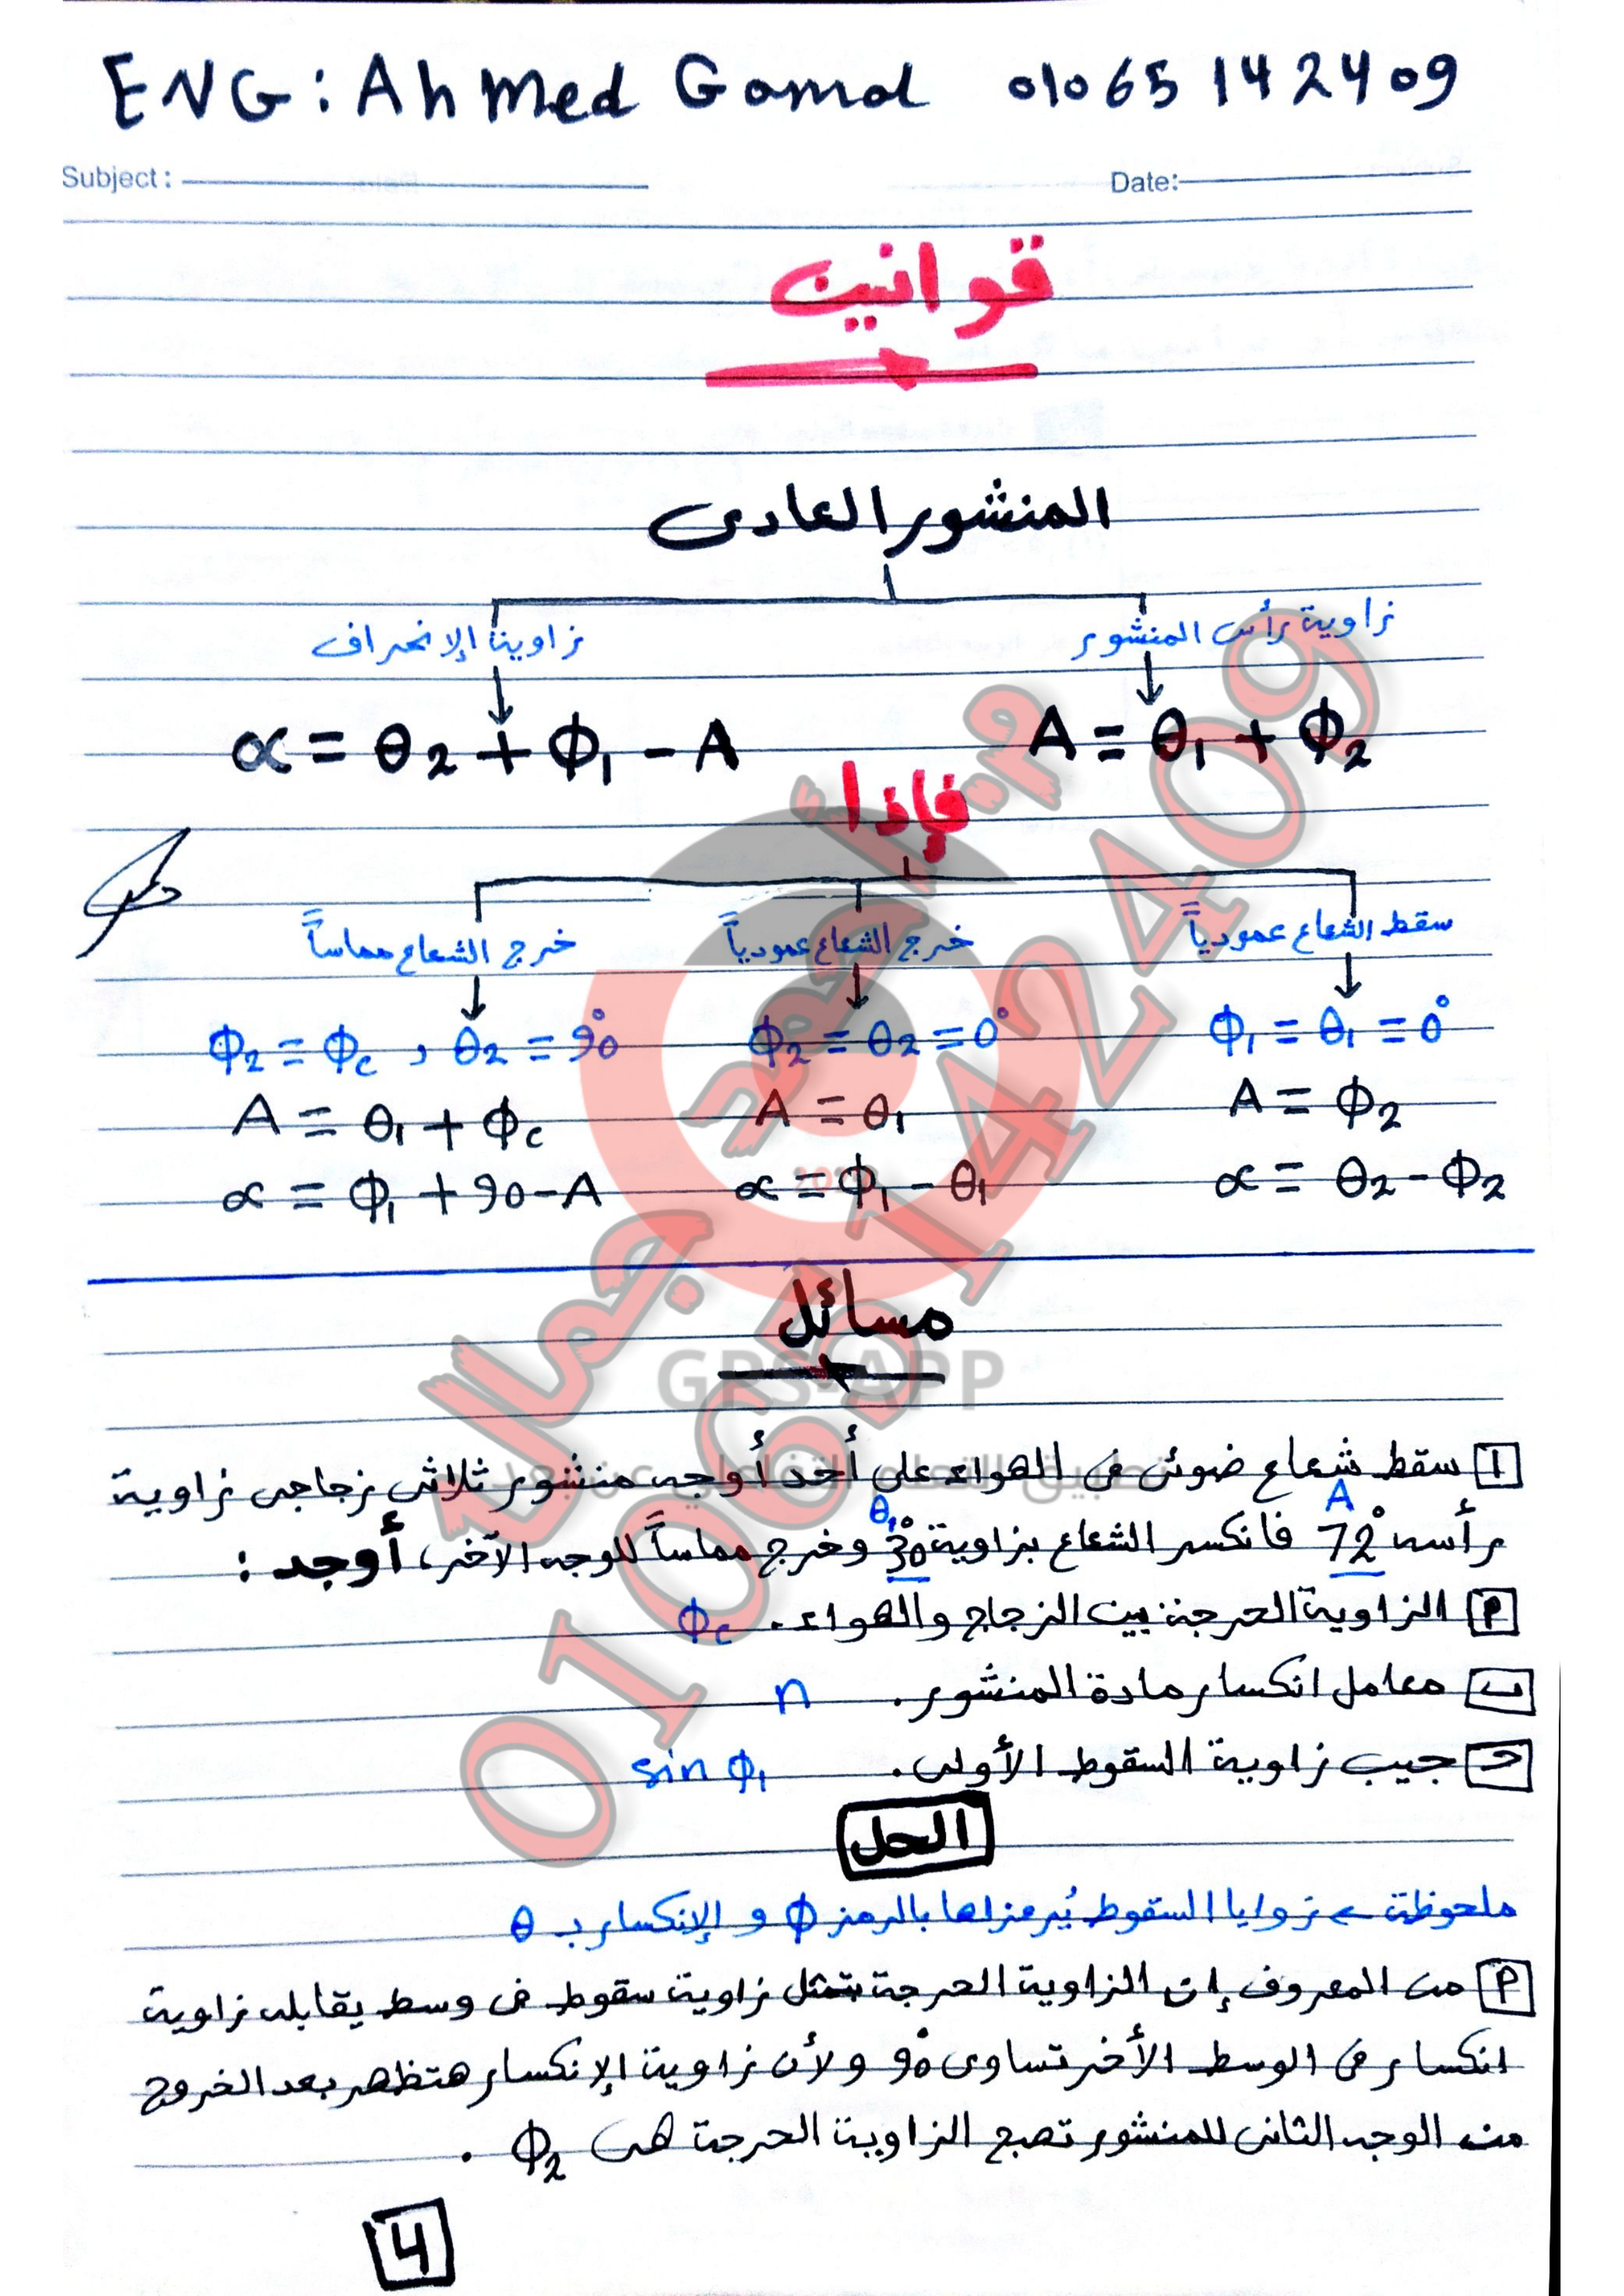 ENG: Ahmed Gamal 01065142409
Subject: Date:
قوانين
المنشور العادى
زاوية رأس المنشور زاوية الإنحراف
A = θ₁ + Φ₂ α = θ₂ + Φ₁ - A
فإذا
سقط الشعاع عمودياً خرج الشعاع عمودياً خرج الشعاع مماساً
Φ₁ = θ₁ = 0° Φ₂ = θ₂ = 0° Φ₂ = Φc , θ₂ = 90°
A = Φ₂ A = θ₁ A = θ₁ + Φc
α = θ₂ - Φ₂ α = Φ₁ - θ₁ α = Φ₁ + 90 - A
مسائل
GPS-APP
1 سقط شعاع ضوئى فى الهواء على أحد أوجه منشور ثلاثى زجاجى زاوية
A θ₁
رأسه 72° فانكسر الشعاع بزاوية 30° وخرج مماساً للوجه الآخر، أوجد :
أ الزاوية الحرجة بين الزجاج والهواء. Φc
ب معامل انكسار مادة المنشور. n
ج جيب زاوية السقوط الأولى. sin Φ₁
الحل
ملحوظة ← زوايا السقوط يُرمز لها بالرمز Φ و الإنكسار بـ θ
أ من المعروف إن الزاوية الحرجة بتمثل زاوية سقوط فى وسط يقابله زاوية
انكسار فى الوسط الأخر تساوى 90° ولأن زاوية الإنكسار هتظهر بعد الخروج
من الوجه الثانى للمنشور تصبح الزاوية الحرجة هى Φ₂ .
4
م/أحمد جمال
01065142409